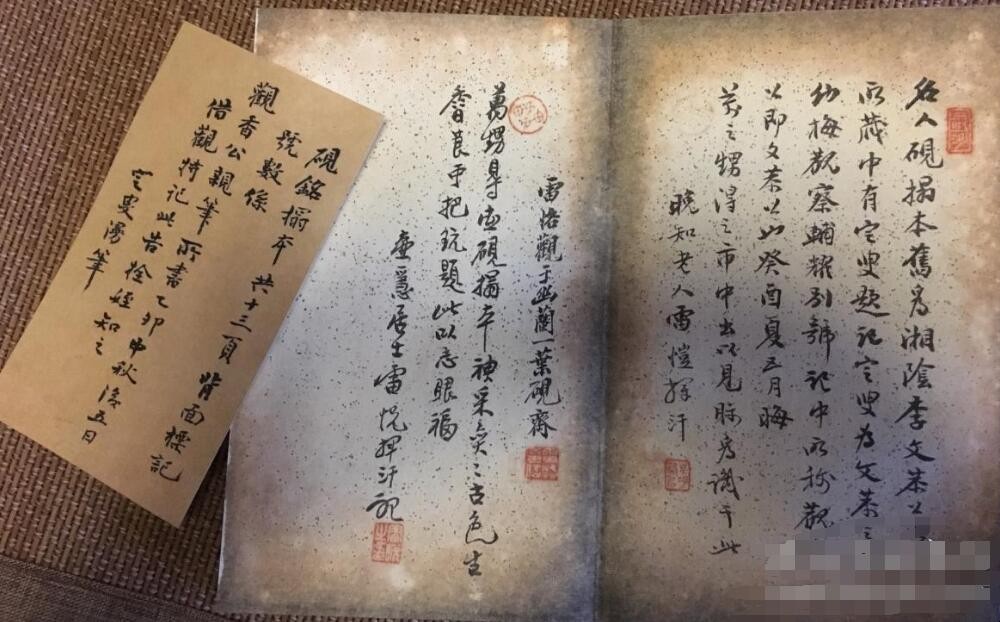 名人硯搨本舊為湘陰李文恭公
所藏中有定叟題記定叟為文恭之
幼梅觀察輔燿別號記中所稱觀
公即文恭公也癸酉夏五月晦
萬之甥得之市中出以見眎為識于此
晚知老人雷愷揮汗
雷恪觀于幽蘭一葉硯齋
萬甥尋硯搨本神采奕之古色生
香良可把玩題此以志眼福
壺隱居士雷悅揮汗記
硯銘搨本共十三頁背面標記
號數係
觀香公親筆所書乙卯中秋後五日
借觀特記此告姪知之
定叟漫筆